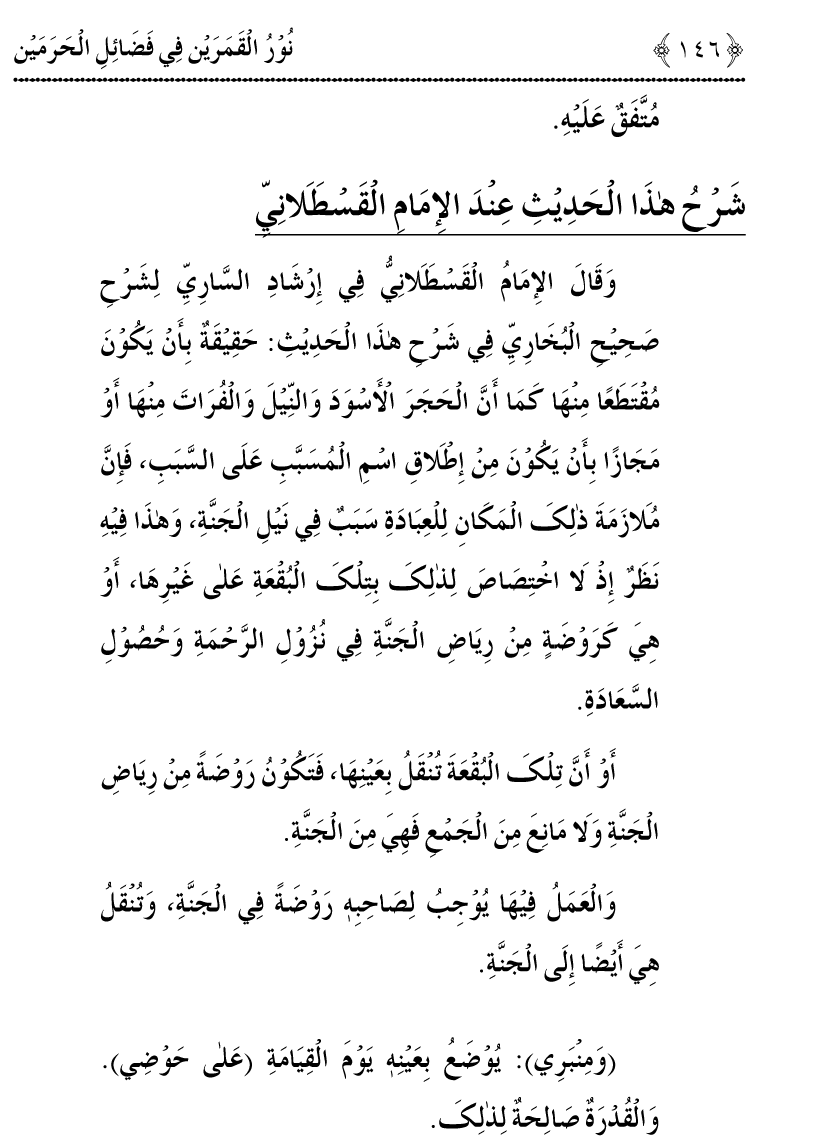 ﴿١٤٦﴾ نُوْرُ الْقَمَرَيْن فِي فَضَائِلِ الْحَرَمَيْن
مُتَّفَقٌ عَلَيْهِ.
شَرْحُ هٰذَا الْحَدِيْثِ عِنْدَ الإِمَامِ الْقَسْطَلَانِيِّ
وَقَالَ الإِمَامُ الْقَسْطَلَانِيُّ فِي إِرْشَادِ السَّارِيِّ لِشَرْحِ
صَحِيْحِ الْبُخَارِيِّ فِي شَرْحِ هٰذَا الْحَدِيْثِ: حَقِيْقَةٌ بِأَنْ يَكُوْنَ
مُقْتَطَعًا مِنْهَا كَمَا أَنَّ الْحَجَرَ الْأَسْوَدَ وَالنِّيْلَ وَالْفُرَاتَ مِنْهَا أَوْ
مَجَازًا بِأَنْ يَكُوْنَ مِنْ إِطْلَاقِ اسْمِ الْمُسَبَّبِ عَلَى السَّبَبِ، فَإِنَّ
مُلَازَمَةَ ذٰلِكَ الْمَكَانِ لِلْعِبَادَةِ سَبَبٌ فِي نَيْلِ الْجَنَّةِ، وَهٰذَا فِيْهِ
نَظَرٌ إِذْ لَا اخْتِصَاصَ لِذٰلِكَ بِتِلْكَ الْبُقْعَةِ عَلٰى غَيْرِهَا، أَوْ
هِيَ كَرَوْضَةٍ مِنْ رِيَاضِ الْجَنَّةِ فِي نُزُوْلِ الرَّحْمَةِ وَحُصُوْلِ
السَّعَادَةِ.
أَوْ أَنَّ تِلْكَ الْبُقْعَةَ تُنْقَلُ بِعَيْنِهَا، فَتَكُوْنُ رَوْضَةً مِنْ رِيَاضِ
الْجَنَّةِ وَلَا مَانِعَ مِنَ الْجَمْعِ فَهِيَ مِنَ الْجَنَّةِ.
وَالْعَمَلُ فِيْهَا يُوْجِبُ لِصَاحِبِهٖ رَوْضَةً فِي الْجَنَّةِ، وَتُنْقَلُ
هِيَ أَيْضًا إِلَى الْجَنَّةِ.
(وَمِنْبَرِي): يُوْضَعُ بِعَيْنِهٖ يَوْمَ الْقِيَامَةِ (عَلٰى حَوْضِي).
وَالْقُدْرَةٌ صَالِحَةٌ لِذٰلِكَ.